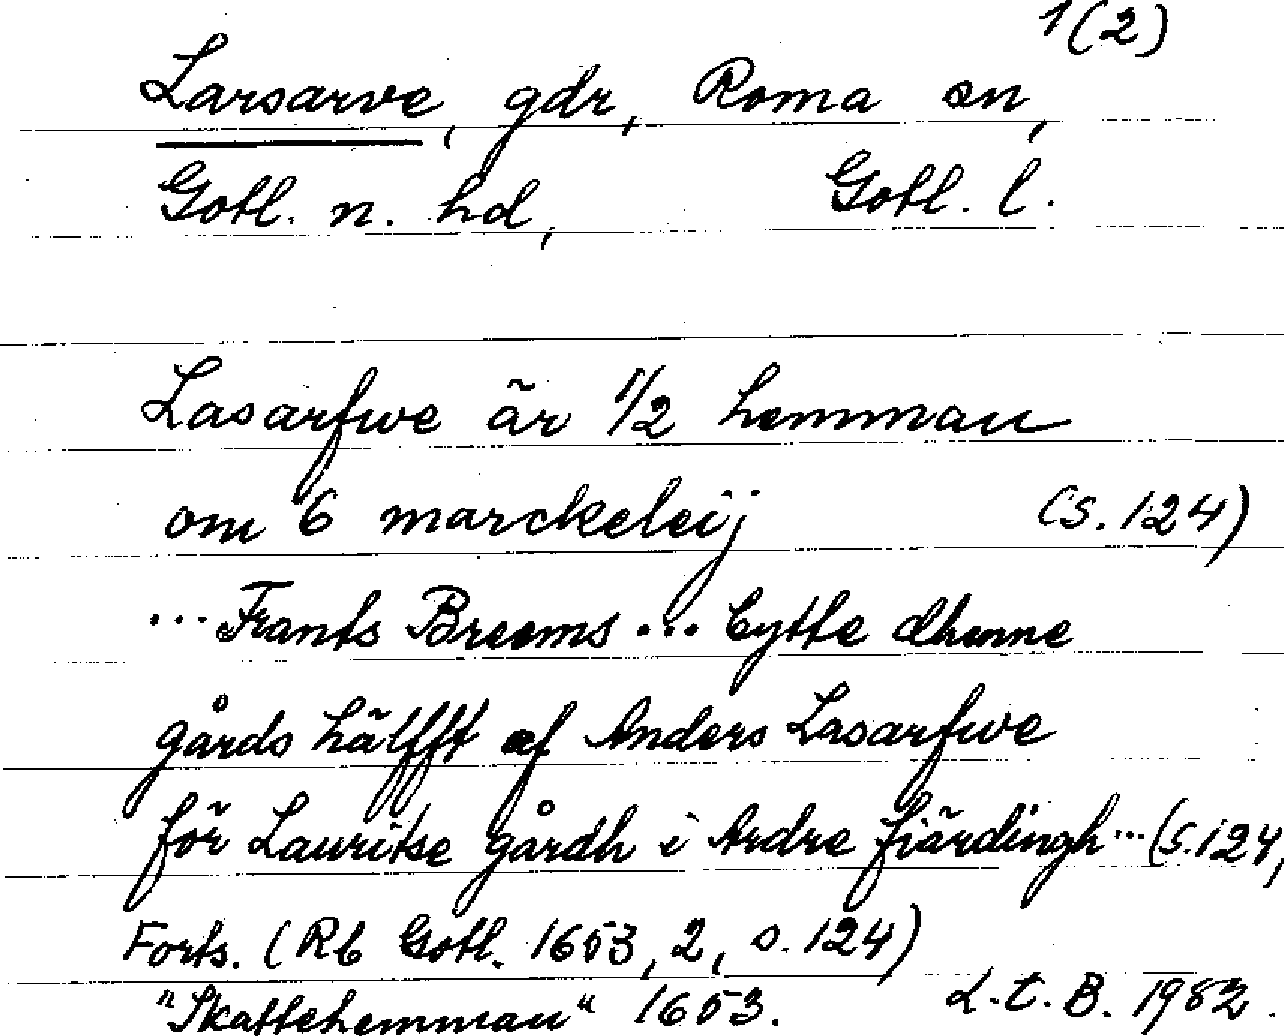 1(2)
Larsarve, gdr, Roma sn,
Gotl. n. hd, Gotl. l.
Lasarfwe är 1/2 hemman
om 6 marckeleij (s. 124)
... Frants Breems ... bytte dhenne
gårds hälfft af Anders Lasarfwe
för Lauritse gårdh i Ardre fiärdingh ... (s. 124,
Forts. (Rb Gotl. 1653, 2, s. 124)
"Skattehemman" 1653. L.t. B. 1983.